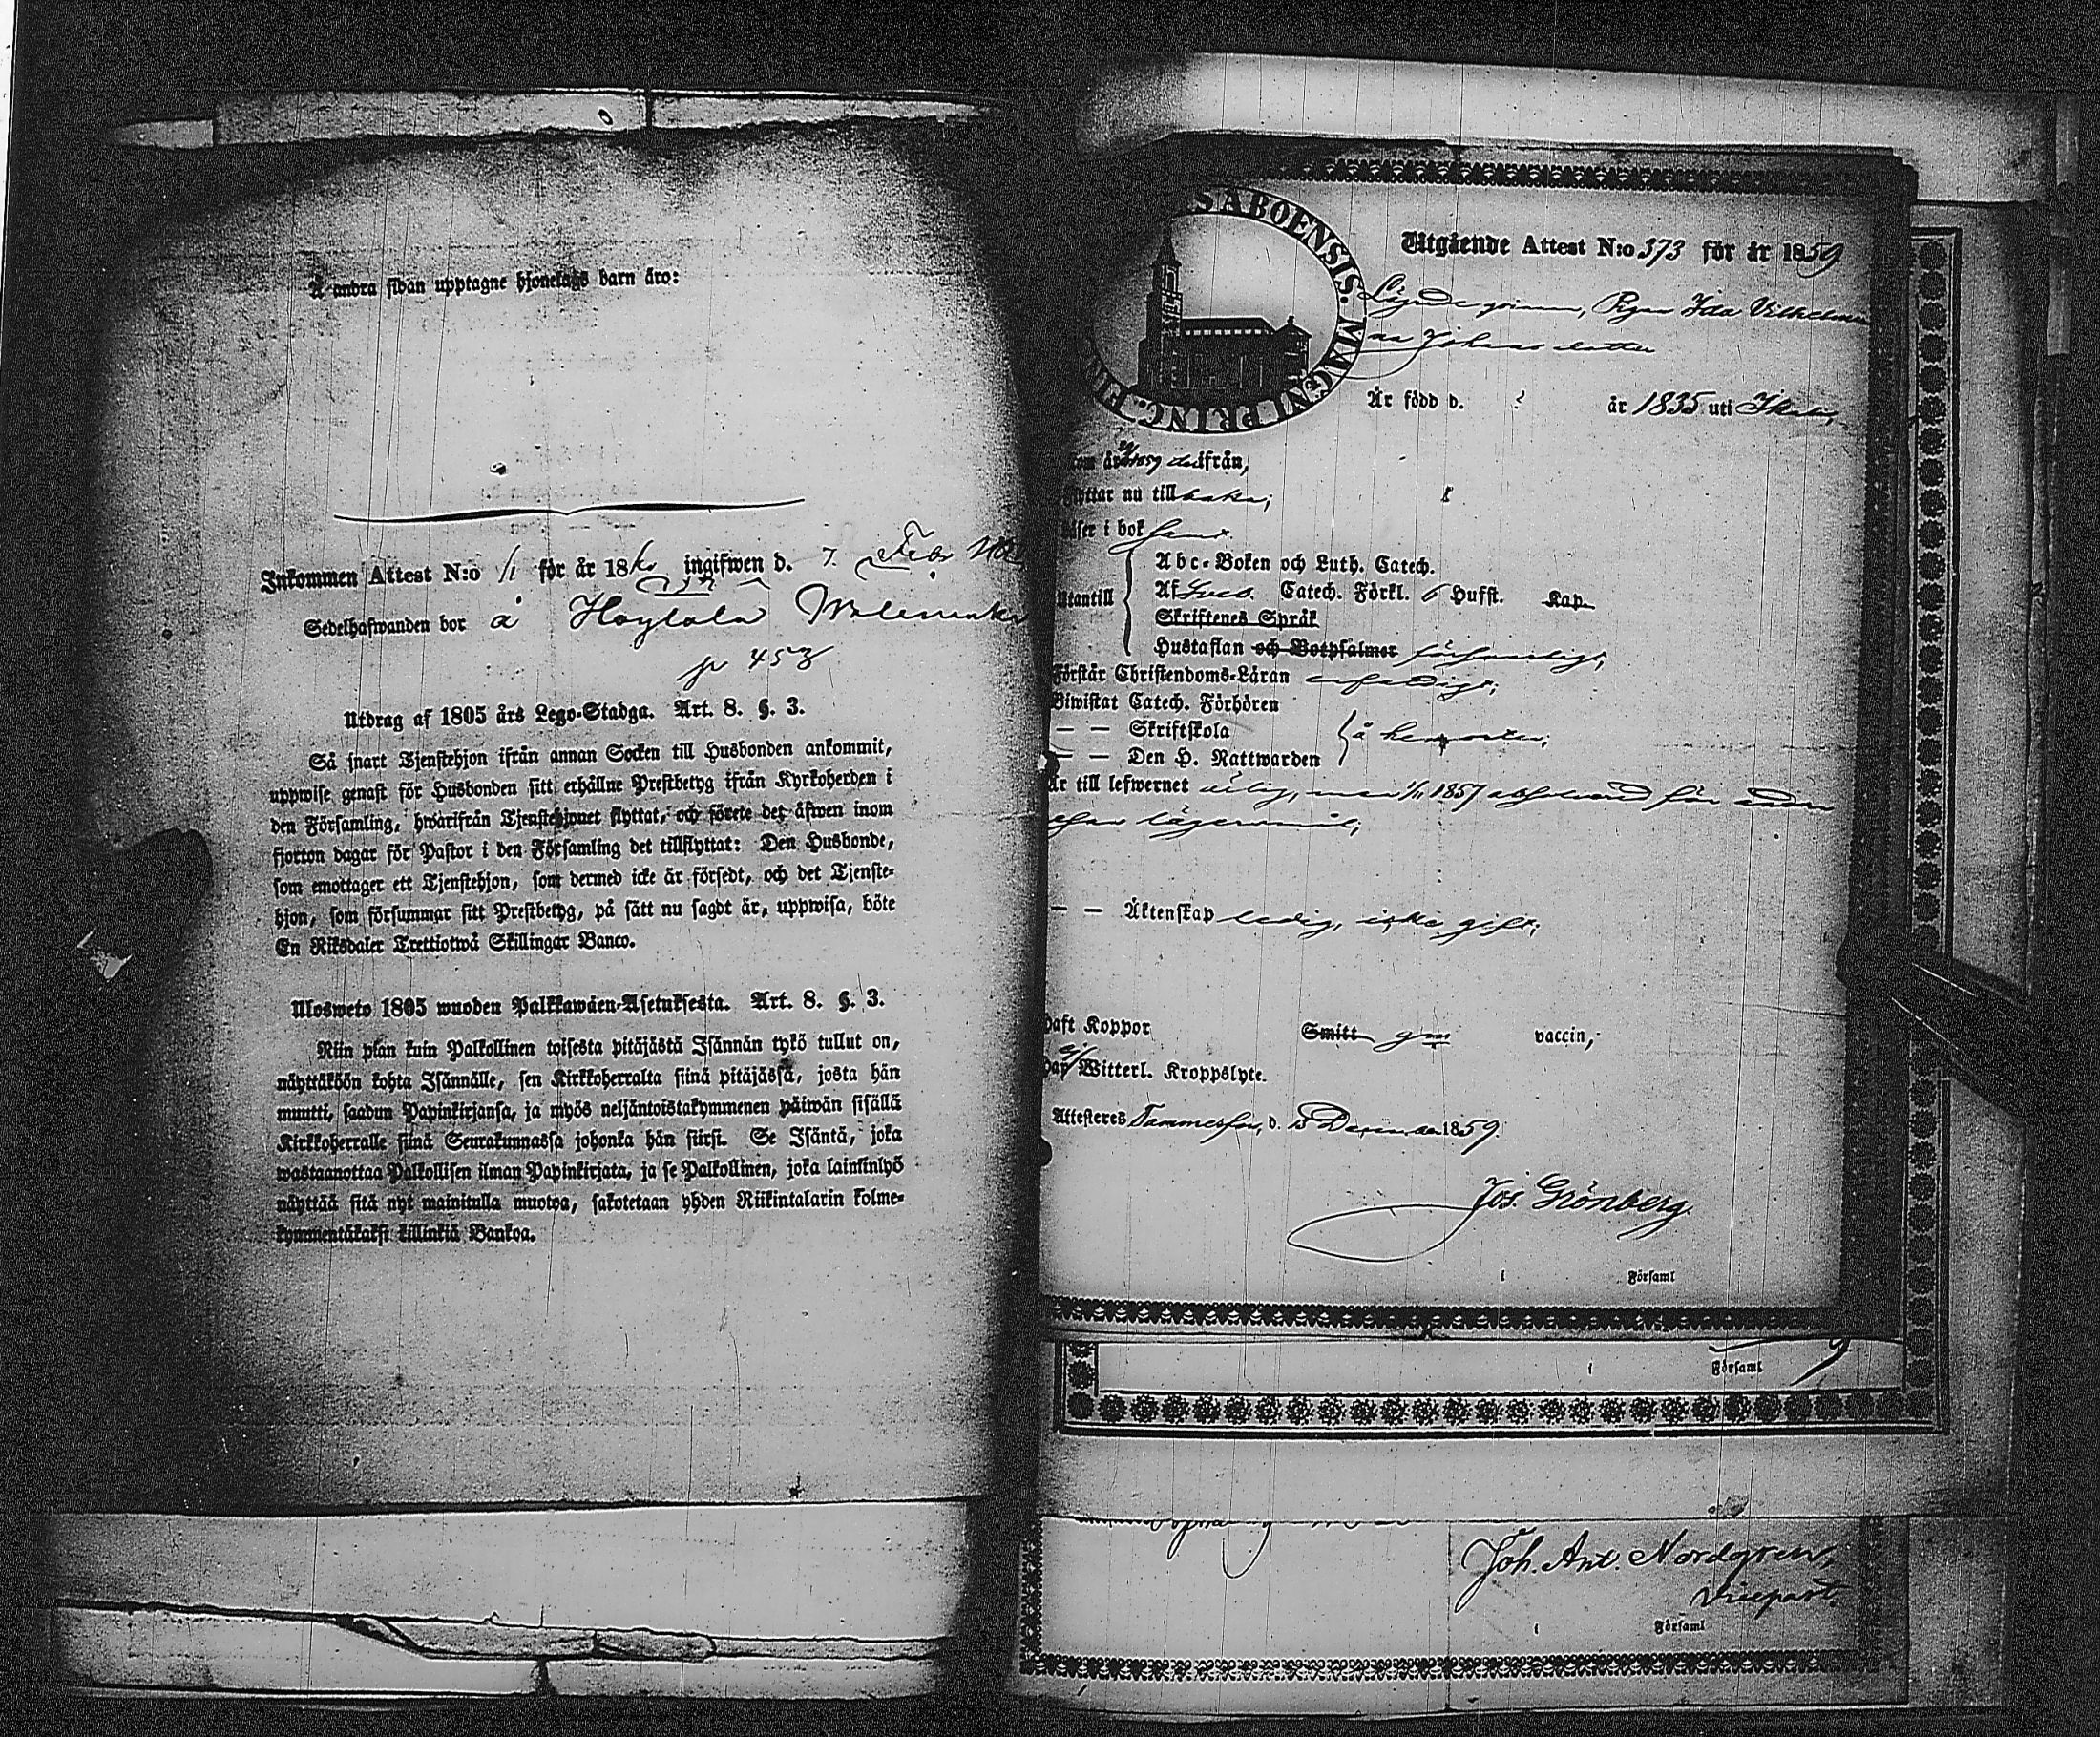 Å andra sidan upptagne hjonelags barn äro:
Inkommen Attest N:o för år 18 ingifwen d. 7. Febr
Sedelhafwanden bor å
p 453
Utdrag af 1805 års Lego-Stadga. Art. 8. §. 3.
Så snart Tjenstehjon ifrån annan Socken till Husbonden ankommit,
uppwise genast för Husbonden sitt erhållne Prestbetyg ifrån Kyrkoherden i
den Församling, hwarifrån Tjenstehjonet flyttat, och förete det äfwen inom
fjorton dagar för Pastor i den Församling det tillflyttat: Den Husbonde,
som emottager ett Tjenstehjon, som dermed icke är försedt, och det Tjenste-
hjon, som försummar sitt Prestbetyg, på sätt nu sagdt är, uppwisa, böte
En Riksdaler Trettiotwå Skillingar Banco.
Ulosweto 1805 wuoden Palkkawäen-Asetuksesta. Art. 8. §. 3.
Niin pian kuin Palkollinen toisesta pitäjästä Isännän tykö tullut on,
näyttäköön kohta Isännälle, sen Kirkkoherralta siinä pitäjässä, josta hän
muutti, saadun Papinkirjansa, ja myös neljäntoistakymmenen päiwän sisällä
Kirkkoherralle siinä Seurakunnassa johonka hän siirsi. Se Isäntä, joka
wastaanottaa Palkollisen ilman Papinkirjata, ja se Palkollinen, joka lainsinlyö
näyttää sitä nyt mainitulla muotoa, sakotetaan yhden Riikintalarin kolme-
kymmentäkaksi killinkiä Bankoa.
S ABOENSIS. MAGNI PRINC. FIN
Utgående Attest N:o 373 för år 1859
Pigan Ida Vilhelmi
na Johansdotter
Är född d. ? år 1835 uti
1859 ifrån,
Flyttar nu till baka;
Läser i bok
Utantill
Abc-Boken och Luth. Catech.
Af Sveb. Catech. Förkl. 6 Hufst. Kap.
Skriftenes Språk
Hustaflan och Botpsalmer försvarligt;
Förstår Christendoms-Läran
Biwistat Catech. Förhören
— — Skriftskola å hemorten;
— — Den H. Nattwarden
Är till lefwernet ärlig, men 1857 absolverad för andra
resan lägersmål;
— — Äktenskap ledig, icke gift;
Haft Koppor Smitt gm vaccin,
Har ej Witterl. Kroppslyte.
Attesteres Tammerfors, d. December 1859.
Jos. Grönberg.
i Församl
i Församl
Joh. Ant. Nordgren,
Vicepast.
i Församl